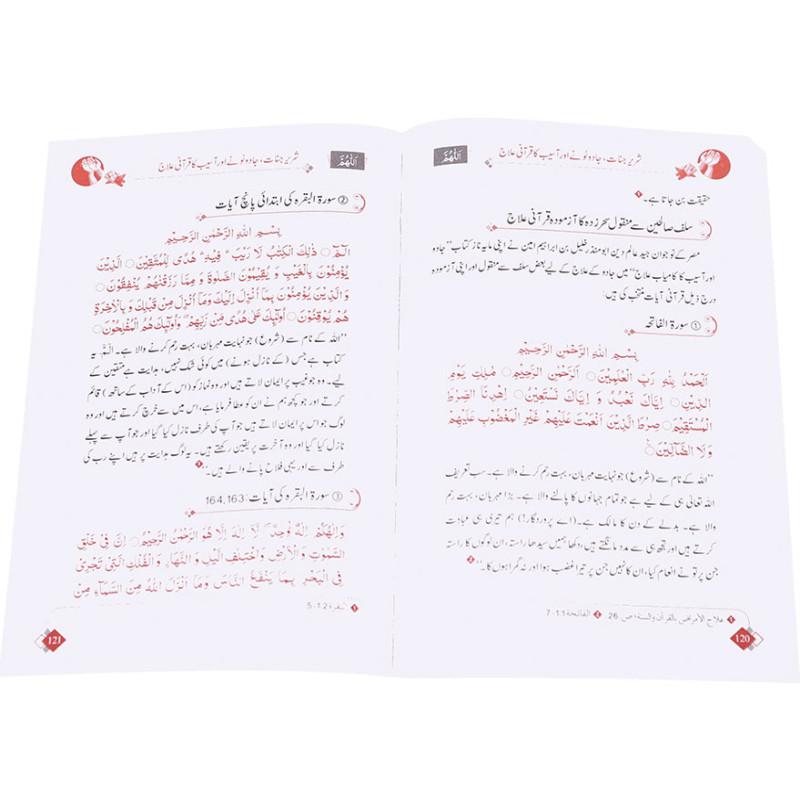 شریر جنات، جادو ٹونے اور آسیب کا قرآنی علاج
اَللّٰهُمَّ
حقیقت بن جاتا ہے۔ ❶
سلف صالحین سے منقول سحرزدہ کا آزمودہ قرآنی علاج
مصر کے نوجوان جید عالم دین ابومنذر خلیل بن ابراہیم امین نے اپنی مایہ ناز کتاب ”جادو
اور آسیب کا کامیاب علاج“ میں جادو کے علاج کے لیے بعض سلف سے منقول اور اپنی آزمودہ
درج ذیل قرآنی آیات منتخب کی ہیں:
① سورۃ الفاتحہ
بِسْمِ اللهِ الرَّحْمٰنِ الرَّحِيْمِ
اَلْحَمْدُ لِلهِ رَبِّ الْعٰلَمِيْنَ ۝ الرَّحْمٰنِ الرَّحِيْمِ ۝ مٰلِكِ يَوْمِ
الدِّيْنِ ۝ اِيَّاكَ نَعْبُدُ وَ اِيَّاكَ نَسْتَعِيْنُ ۝ اِهْدِنَا الصِّرَاطَ
الْمُسْتَقِيْمَ ۝ صِرَاطَ الَّذِيْنَ اَنْعَمْتَ عَلَيْهِمْ غَيْرِ الْمَغْضُوْبِ عَلَيْهِمْ
وَلَا الضَّآلِّيْنَ ۝
”اللہ کے نام سے (شروع) جو نہایت مہربان، بہت رحم کرنے والا ہے۔ سب تعریف
اللہ تعالیٰ ہی کے لیے ہے جو تمام جہانوں کا پالنے والا ہے۔ بڑا مہربان، بہت رحم
والا ہے۔ بدلے کے دن کا مالک ہے۔ (اے پروردگار!) ہم تیری ہی عبادت
کرتے ہیں اور تجھ ہی سے مدد مانگتے ہیں، دکھا ہمیں سیدھا راستہ، ان لوگوں کا راستہ
جن پر تو نے انعام کیا، ان کا نہیں جن پر تیرا غضب ہوا اور نہ گمراہوں کا۔“ ❷
❶ علاج الأمراض بالقرآن والسنة، ص: 26 ❷ الفاتحة 1:1-7
120
شریر جنات، جادو ٹونے اور آسیب کا قرآنی علاج
اَللّٰهُمَّ
② سورۃ البقرہ کی ابتدائی پانچ آیات
بِسْمِ اللهِ الرَّحْمٰنِ الرَّحِيْمِ
الٓمّٓ ۝ ذٰلِكَ الْكِتٰبُ لَا رَيْبَ ۛ فِيْهِ ۛ هُدًى لِّلْمُتَّقِيْنَ ۝ الَّذِيْنَ
يُؤْمِنُوْنَ بِالْغَيْبِ وَ يُقِيْمُوْنَ الصَّلٰوةَ وَ مِمَّا رَزَقْنٰهُمْ يُنْفِقُوْنَ ۝
وَ الَّذِيْنَ يُؤْمِنُوْنَ بِمَآ اُنْزِلَ اِلَيْكَ وَمَآ اُنْزِلَ مِنْ قَبْلِكَ وَ بِالْاٰخِرَةِ
هُمْ يُوْقِنُوْنَ ۝ اُولٰٓئِكَ عَلٰى هُدًى مِّنْ رَّبِّهِمْ وَ اُولٰٓئِكَ هُمُ الْمُفْلِحُوْنَ ۝
”اللہ کے نام سے (شروع) جو نہایت مہربان، بہت رحم کرنے والا ہے۔ الٓمّٓ، یہ
کتاب ہے جس (کے نازل ہونے) میں کوئی شک نہیں، ہدایت ہے متقین کے
لیے۔ وہ جو غیب پر ایمان لاتے ہیں اور وہ نماز کو (اس کے آداب کے ساتھ) قائم
کرتے اور جو کچھ ہم نے ان کو عطا فرمایا ہے، اس میں سے خرچ کرتے ہیں اور وہ
لوگ جو اس پر ایمان لاتے ہیں جو آپ کی طرف نازل کیا گیا اور جو آپ سے پہلے
نازل کیا گیا اور وہ آخرت پر یقین رکھتے ہیں۔ یہ لوگ ہدایت پر ہیں اپنے رب کی
طرف سے اور یہی فلاح پانے والے ہیں۔“ ❶
③ سورۃ البقرہ کی آیات: 164,163
وَ اِلٰهُكُمْ اِلٰهٌ وَّاحِدٌ لَآ اِلٰهَ اِلَّا هُوَ الرَّحْمٰنُ الرَّحِيْمُ ۝ اِنَّ فِيْ خَلْقِ
السَّمٰوٰتِ وَ الْاَرْضِ وَ اخْتِلَافِ الَّيْلِ وَ النَّهَارِ وَ الْفُلْكِ الَّتِيْ تَجْرِيْ
فِي الْبَحْرِ بِمَا يَنْفَعُ النَّاسَ وَ مَآ اَنْزَلَ اللهُ مِنَ السَّمَآءِ مِنْ
❶ البقرة 1:2-5
121